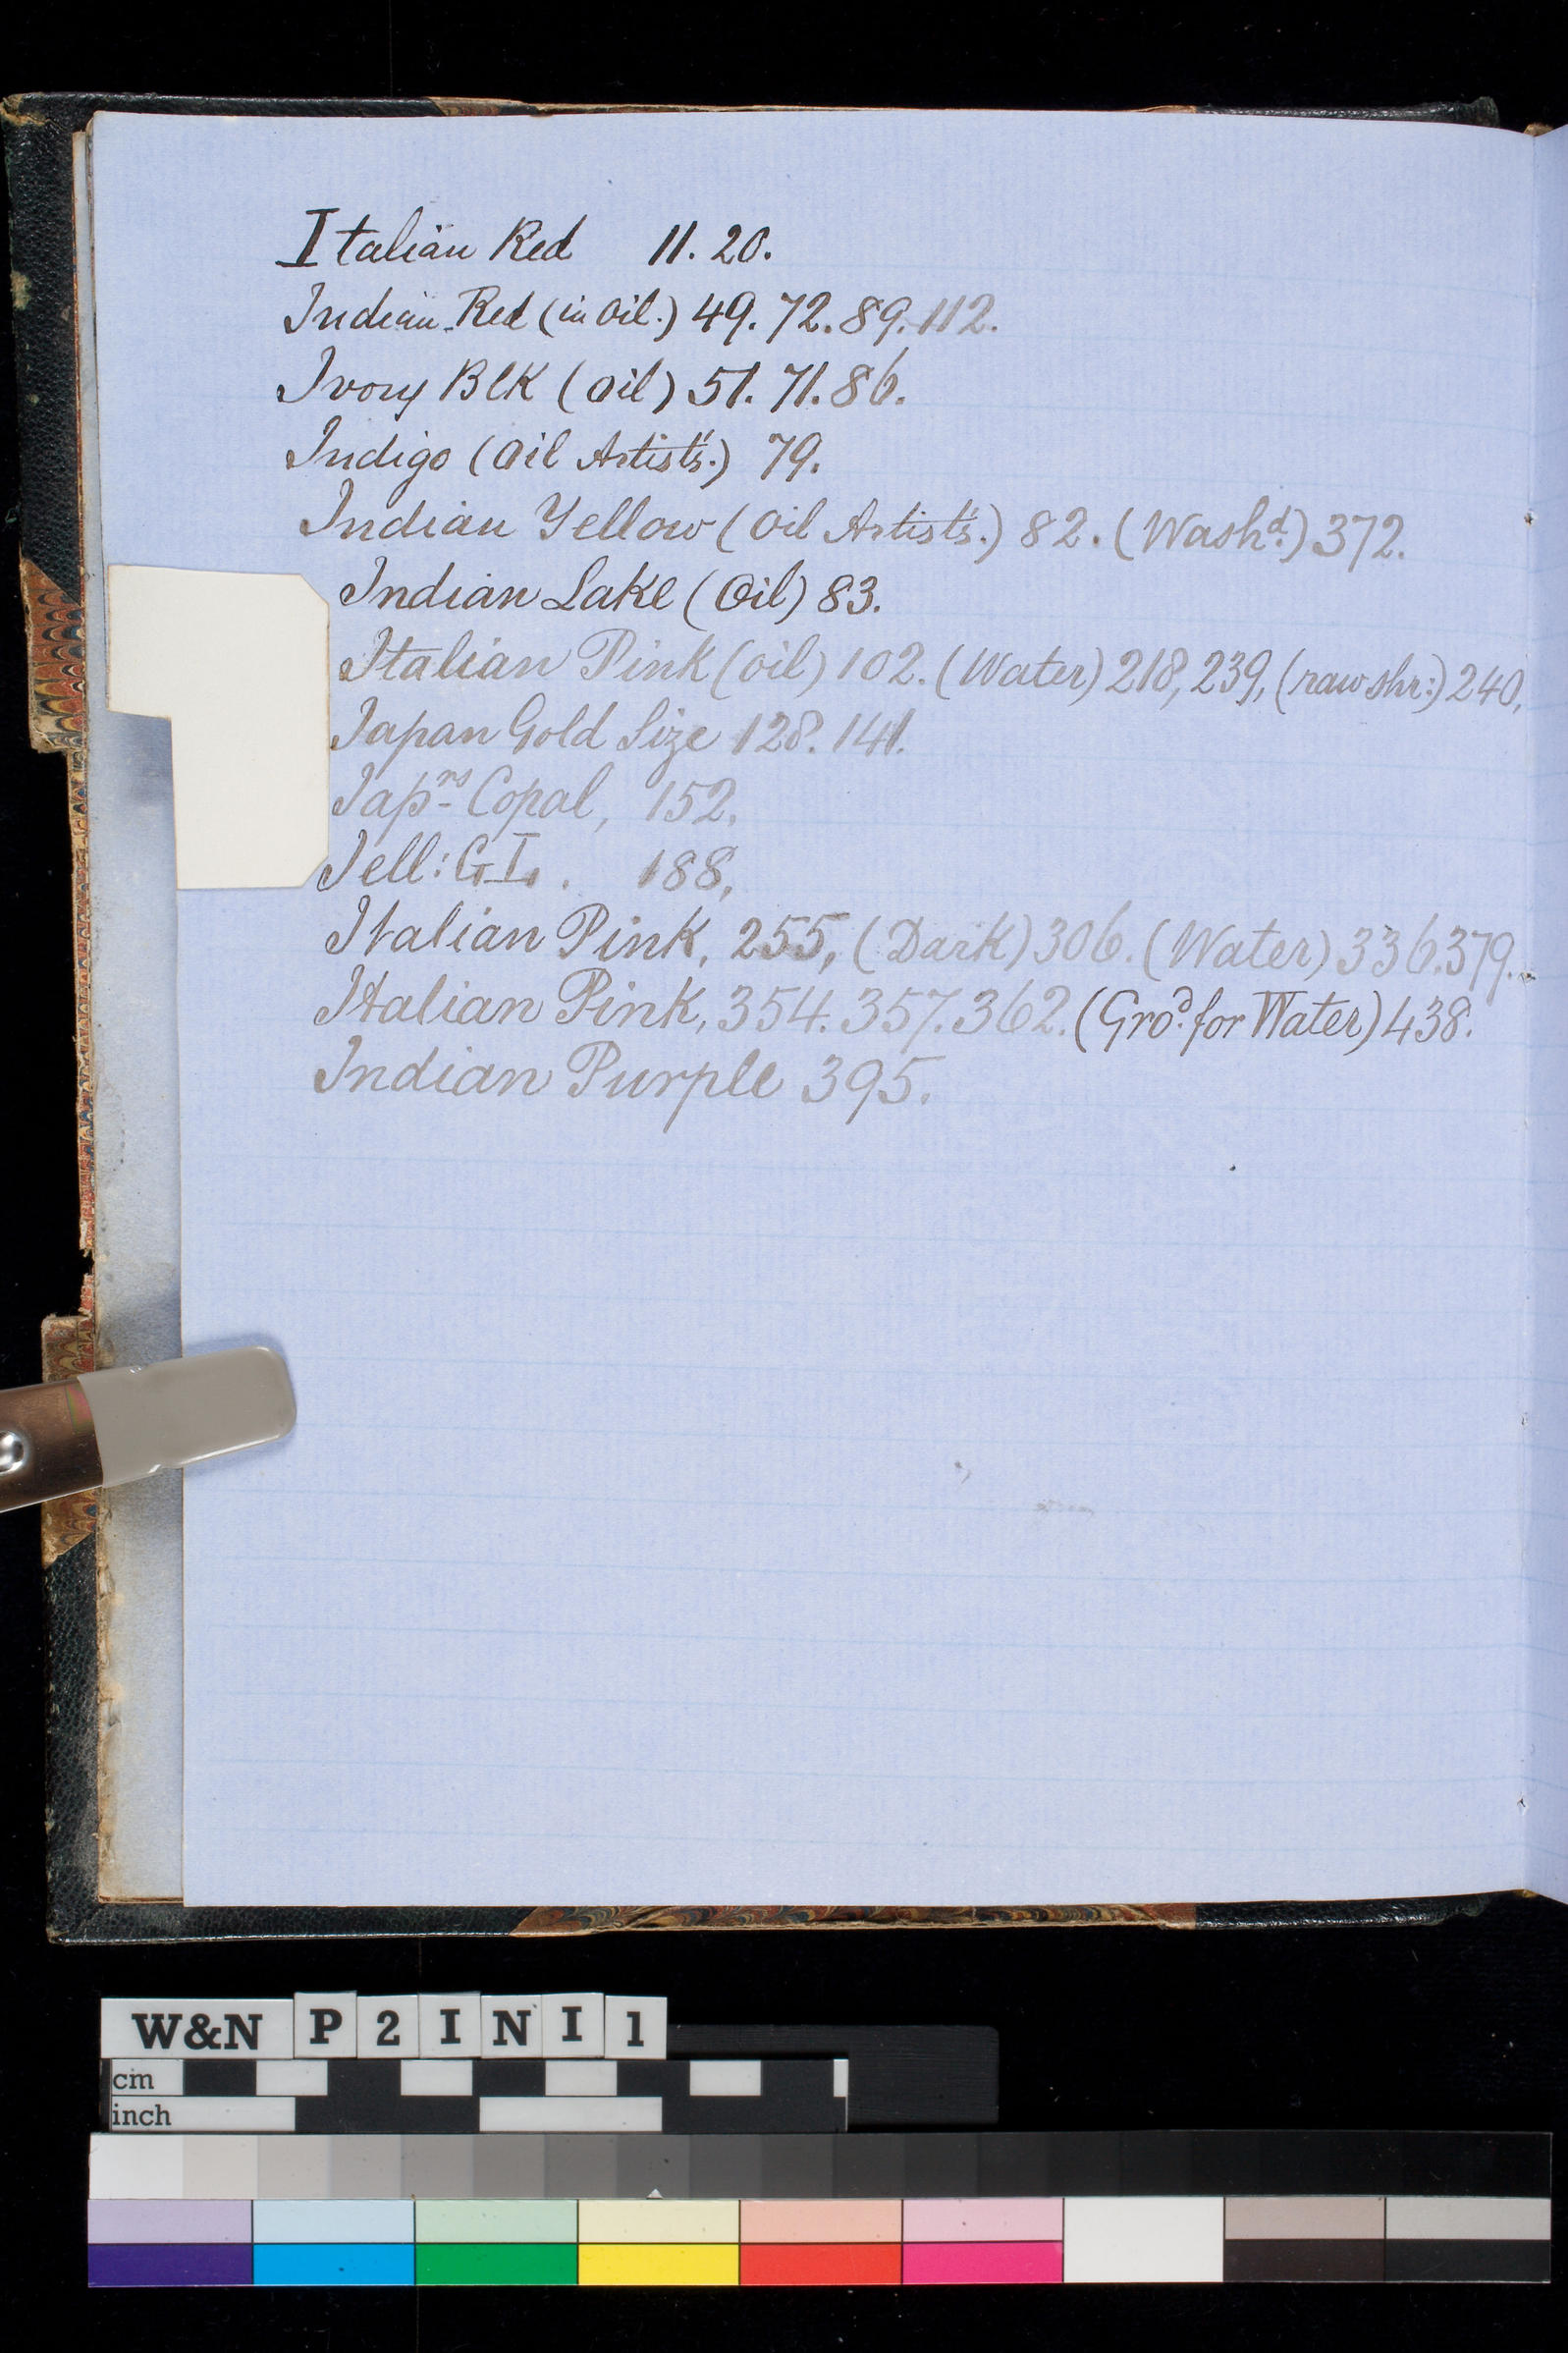 Italian Red 11. 20.
Indian Red (in Oil.) 49. 72. 89. 112.
Ivory Blk (Oil) 51. 71. 86.
Indigo (Oil Artist's.) 79.
Indian Yellow (Oil Artist's.) 82. (Wash^d.) 372.
Indian Lake (Oil) 83.
Italian Pink (oil) 102. (Water) 218, 239, (raw shr:) 240,
Japan Gold Size 128. 141.
Jap^ns Copal, 152,
Jell: G I. 188,
Italian Pink, 255, (Dark) 306. (Water) 336. 379.
Italian Pink, 354. 357. 362. (Gro^d. for Water) 438.
Indian Purple 395.
W&N P 2 I N I 1
cm
inch